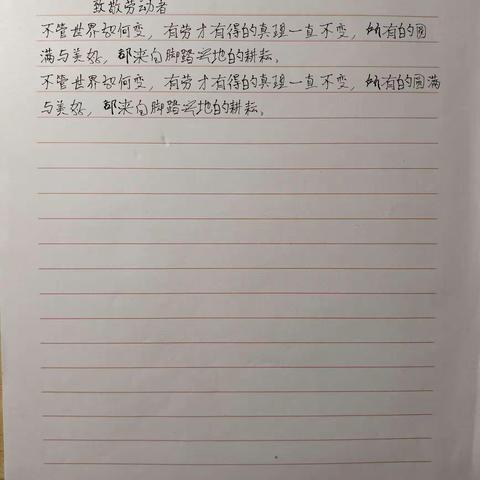 致敬劳动者
不管世界如何变，有劳才有得的真理一直不变，所有的圆
满与美好，都来自脚踏实地的耕耘。
不管世界如何变，有劳才有得的真理一直不变，所有的圆满
与美好，都来自脚踏实地的耕耘。